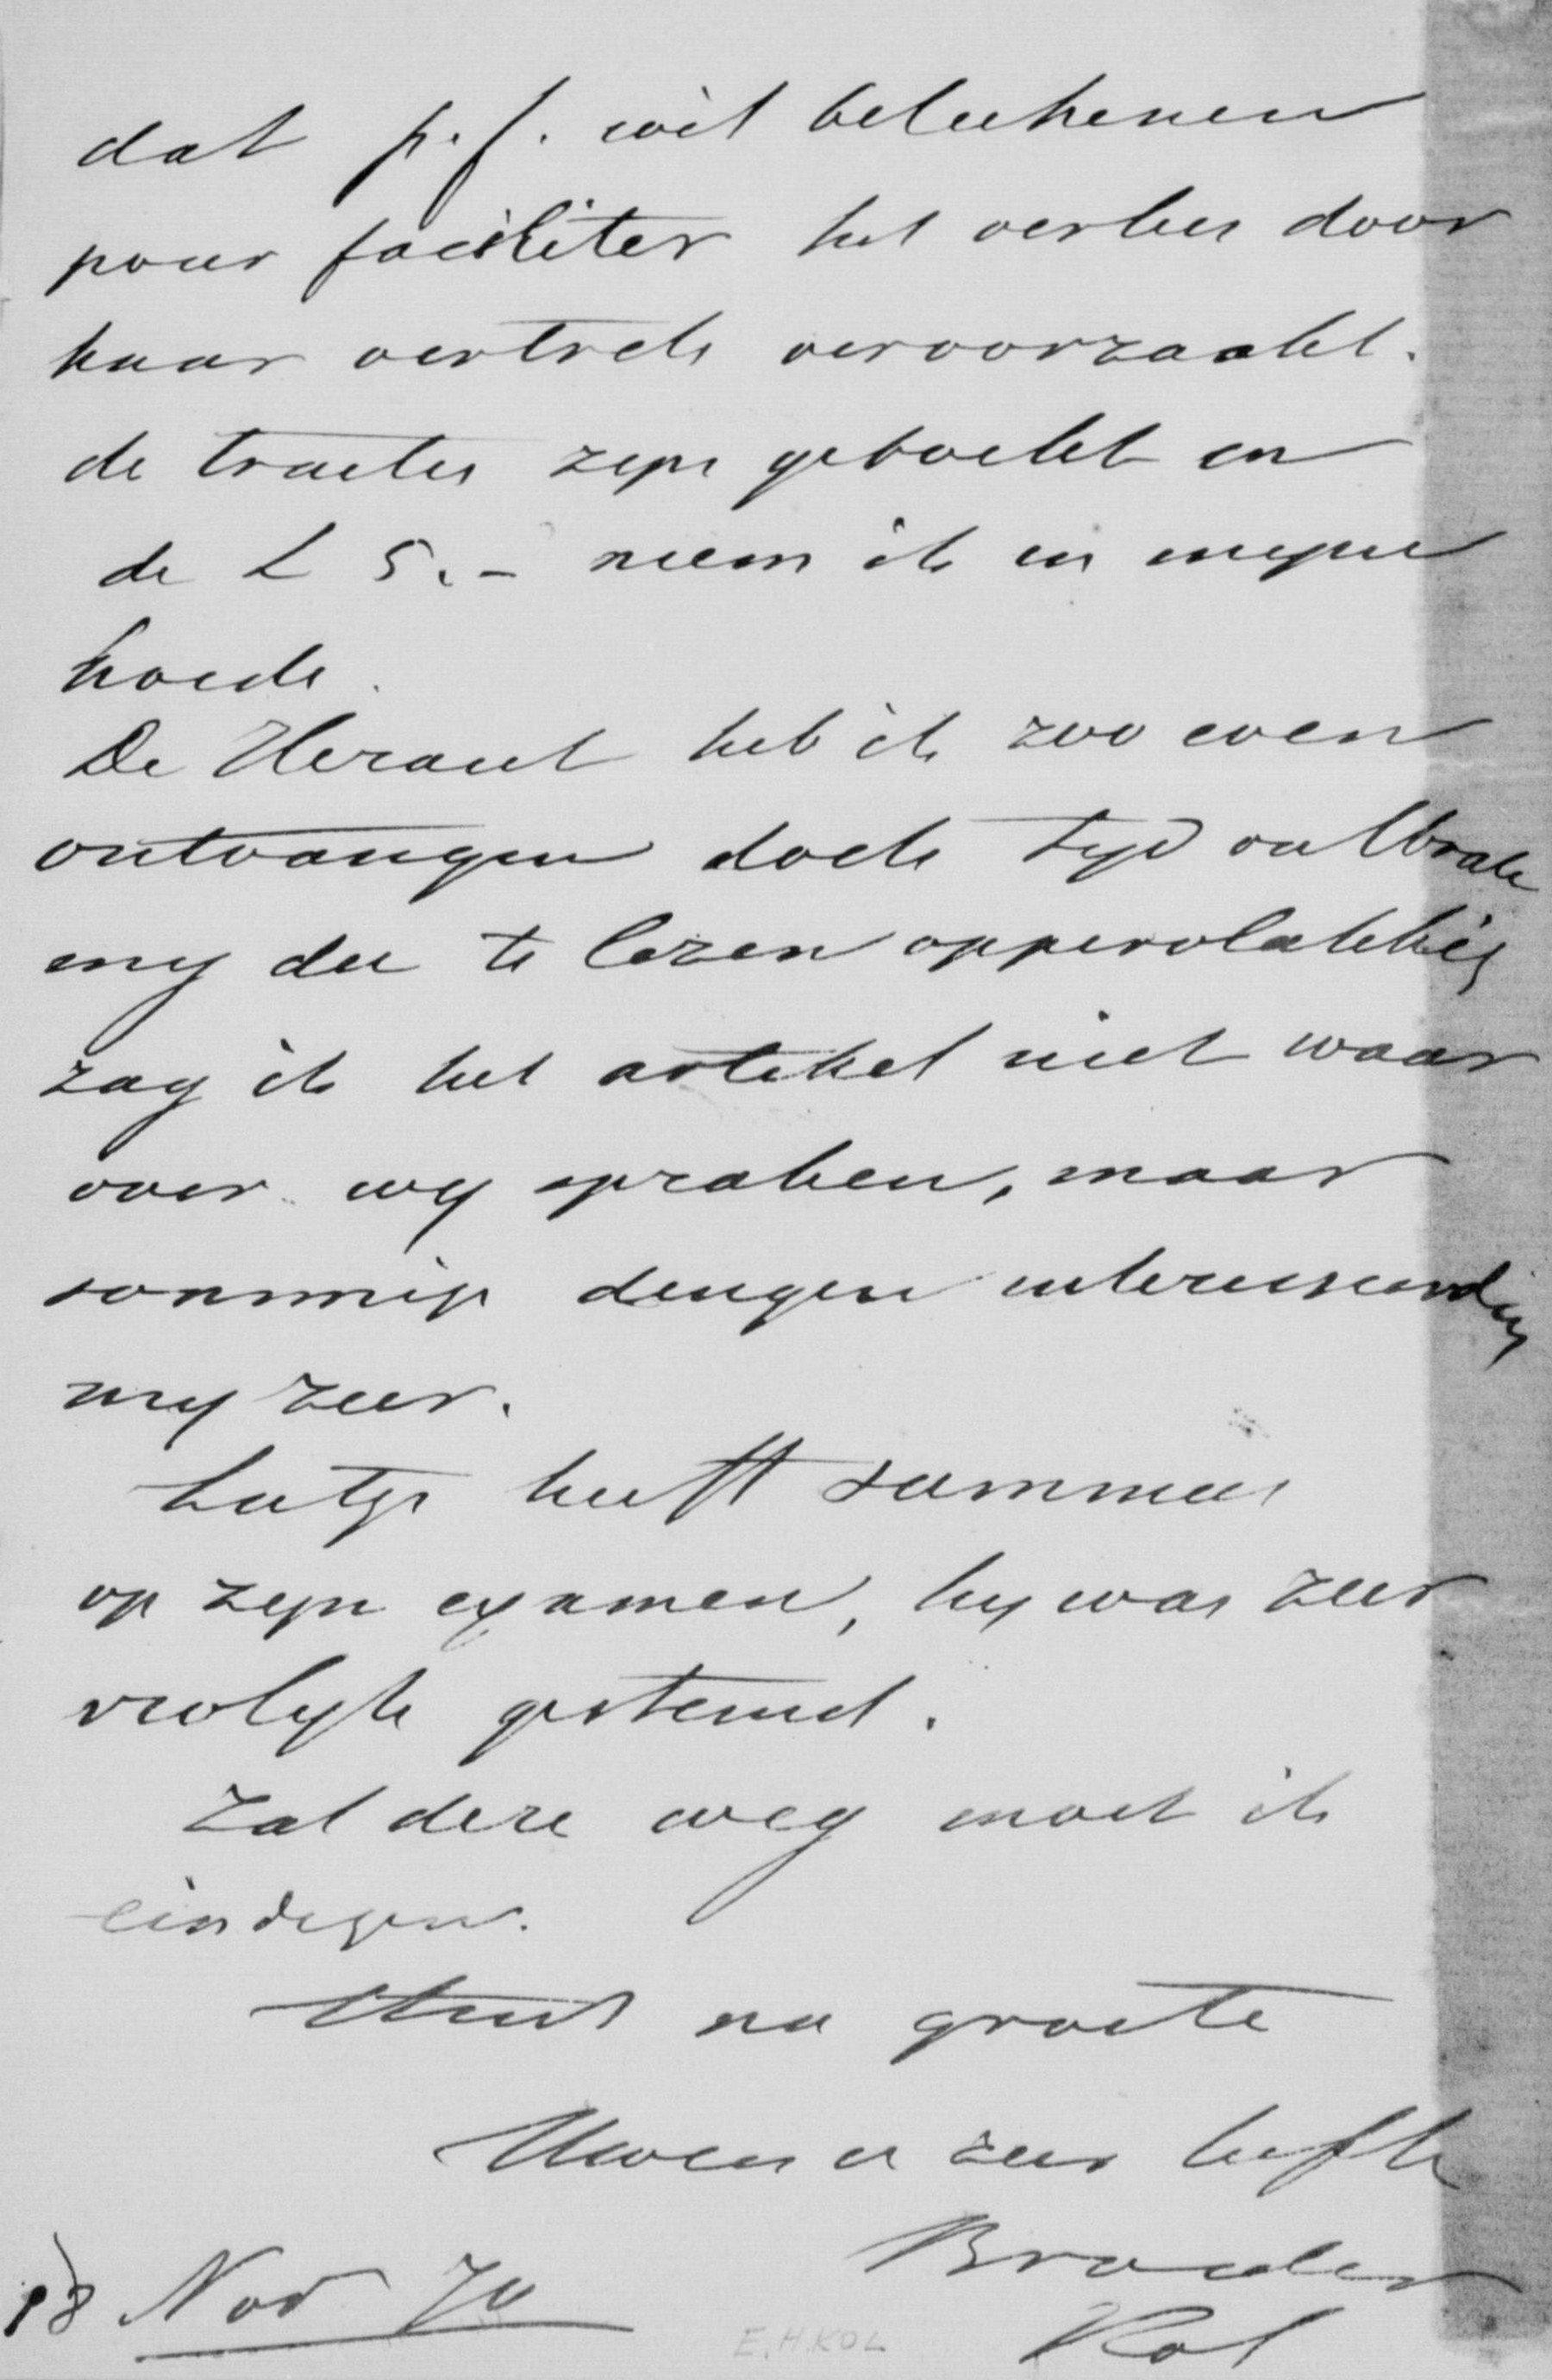 dat p.f. wil beteekenen
pour faciliter het verlies door
haar vertrek veroorzaakt.
de tractes zyn geboekt en
de L 5.- neem ik in myne
hoede.
De Heraut heb ik zoo even
ontvangen doch tyd ontbrak
my die te lezen oppervlakkig
zag ik het artikel niet waar
over wy spraken, maar
sommige dingen interesseerden
my zeer.
Lutge heeft summus
op zyn examen, hy was zeer
vrolyk gestemd.
Zal deze weg moet ik
eindigen.
na groete
Uwen u zeer liefh
Broeder
Kol
18 Nov 70
E.H.KOL